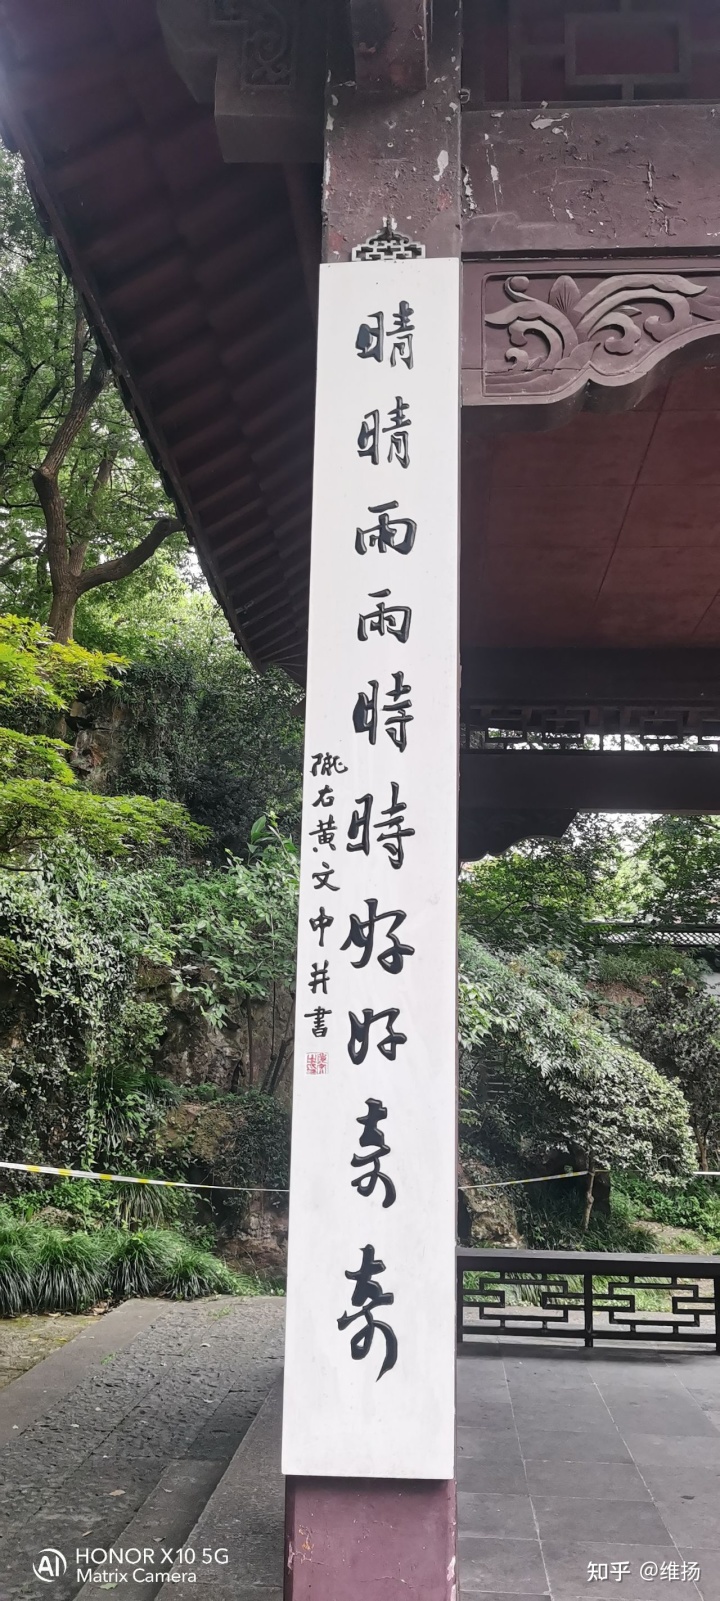 晴晴雨雨時時好好奇奇
隴右黄文中并書
HONOR X10 5G
Matrix Camera
知乎 @维扬